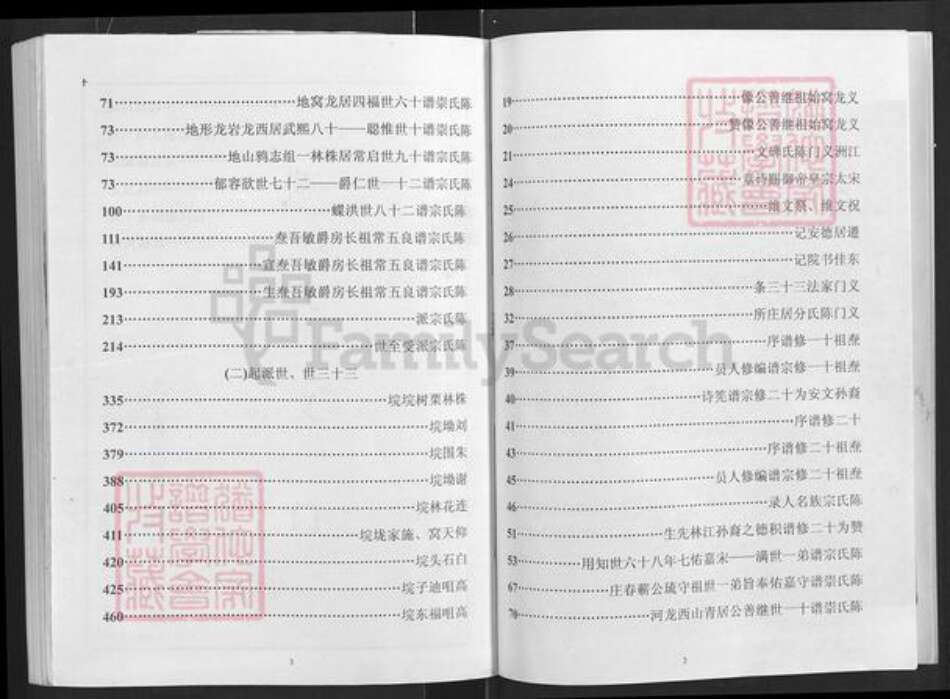 义龙窝始祖继善公像 19
义龙窝始祖继善公像赞 20
江洲义门陈氏碑文 21
宋太宗皇帝御赐诗章 24
祝文维、祭文维 25
遵居德安记 26
东佳书院记 27
义门家法三十三条 28
义门陈氏分居庄所 32
焘祖十一修谱序 37
焘祖十一修宗谱编修人员 39
裔孙文安为十二修宗谱诗 40
十二修谱序 41
焘祖十二修谱序 43
焘祖十二修宗谱编修人员 45
陈氏宗族名人录 46
赞为十二修谱积德之裔孙江林先生 51
陈氏宗谱弟一世满——宋嘉佑七年八十六世知用 53
陈氏崇谱守嘉佑奉旨弟一世祖守琉公蕲春庄 67
陈氏崇谱十一世继善公居青山西龙河 70
2
陈氏崇谱十六世福四居龙窝地 71
陈氏崇谱十世惟聪——十八熙武居西龙岩龙形地 73
陈氏崇谱十九世启常居株林一组志鸦山地 73
陈氏宗谱二十一世仁爵——二十七世欣容郁 73
陈氏宗谱二十八世洪蝶 100
陈氏宗谱良五常祖长房爵敏吾焘 111
陈氏宗谱良五常祖长房爵敏吾焘宣 141
陈氏宗谱良五常祖长房爵敏吾焘生 193
陈氏宗派 213
陈氏宗派受至世 214
三十三世、世派起(二)
株林栗树垸垸 335
刘坳垸 372
朱围垸 379
谢坳垸 388
连花林垸 405
仰天窝、施家垅垸 411
白石头垸 420
高唱迪子垸 425
高唱福东垸 460
3
FamilySearch